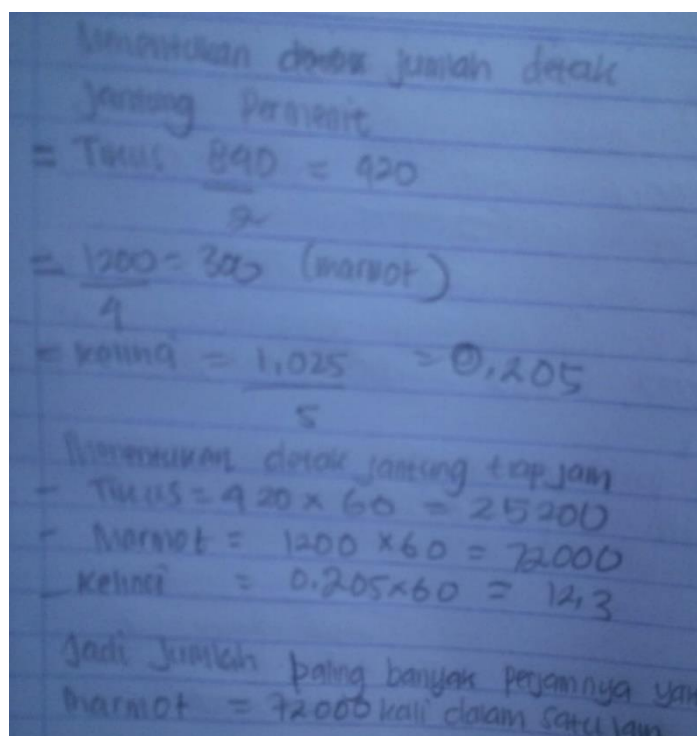 Menentukan jumlah detak
jantung permenit
= Tikus 840 = 420
2
= 1200 = 300 (marmot)
4
= = 1,025 = 0,205
5
Menentukan detak jantung tiap jam
- Tikus = 420 x 60 = 25200
- Marmot = 1200 x 60 = 72000
- Kelinci = 0.205 x 60 = 12,3
Jadi jumlah paling banyak perjamnya yak
marmot = 72000 kali dalam satu jam